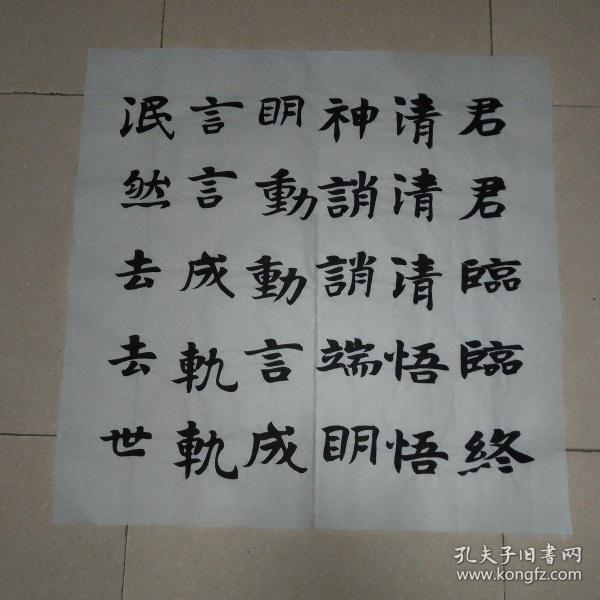 君君臨臨終
清清清悟悟
神誚誚端明
明動動言成
言言成軌軌
泯然去去世
孔夫子旧书网
www.kongfz.com